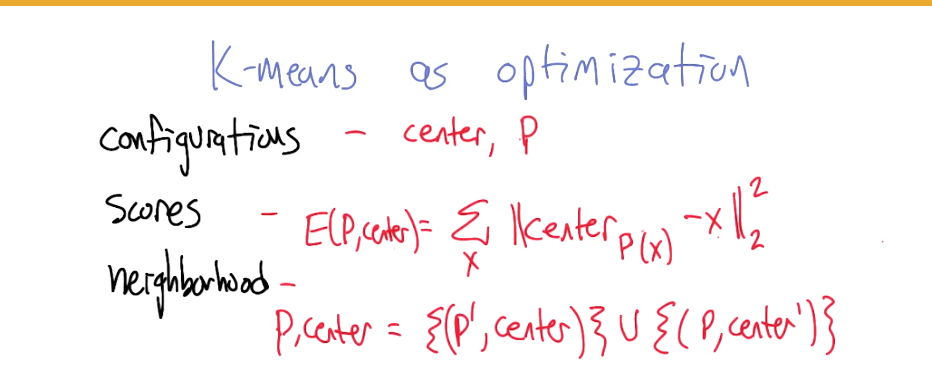 K-means as optimization
configurations - center, P
scores - E(P,center)= Σ_x ||center_P(x) - x||₂²
neighborhood -
P,center = {(P', center)} ∪ {(P, center')}